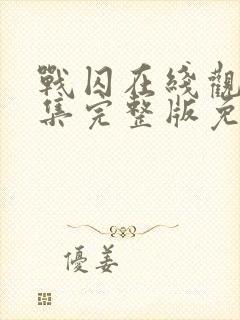 戰囚在綫觀
集完整版免
優姜